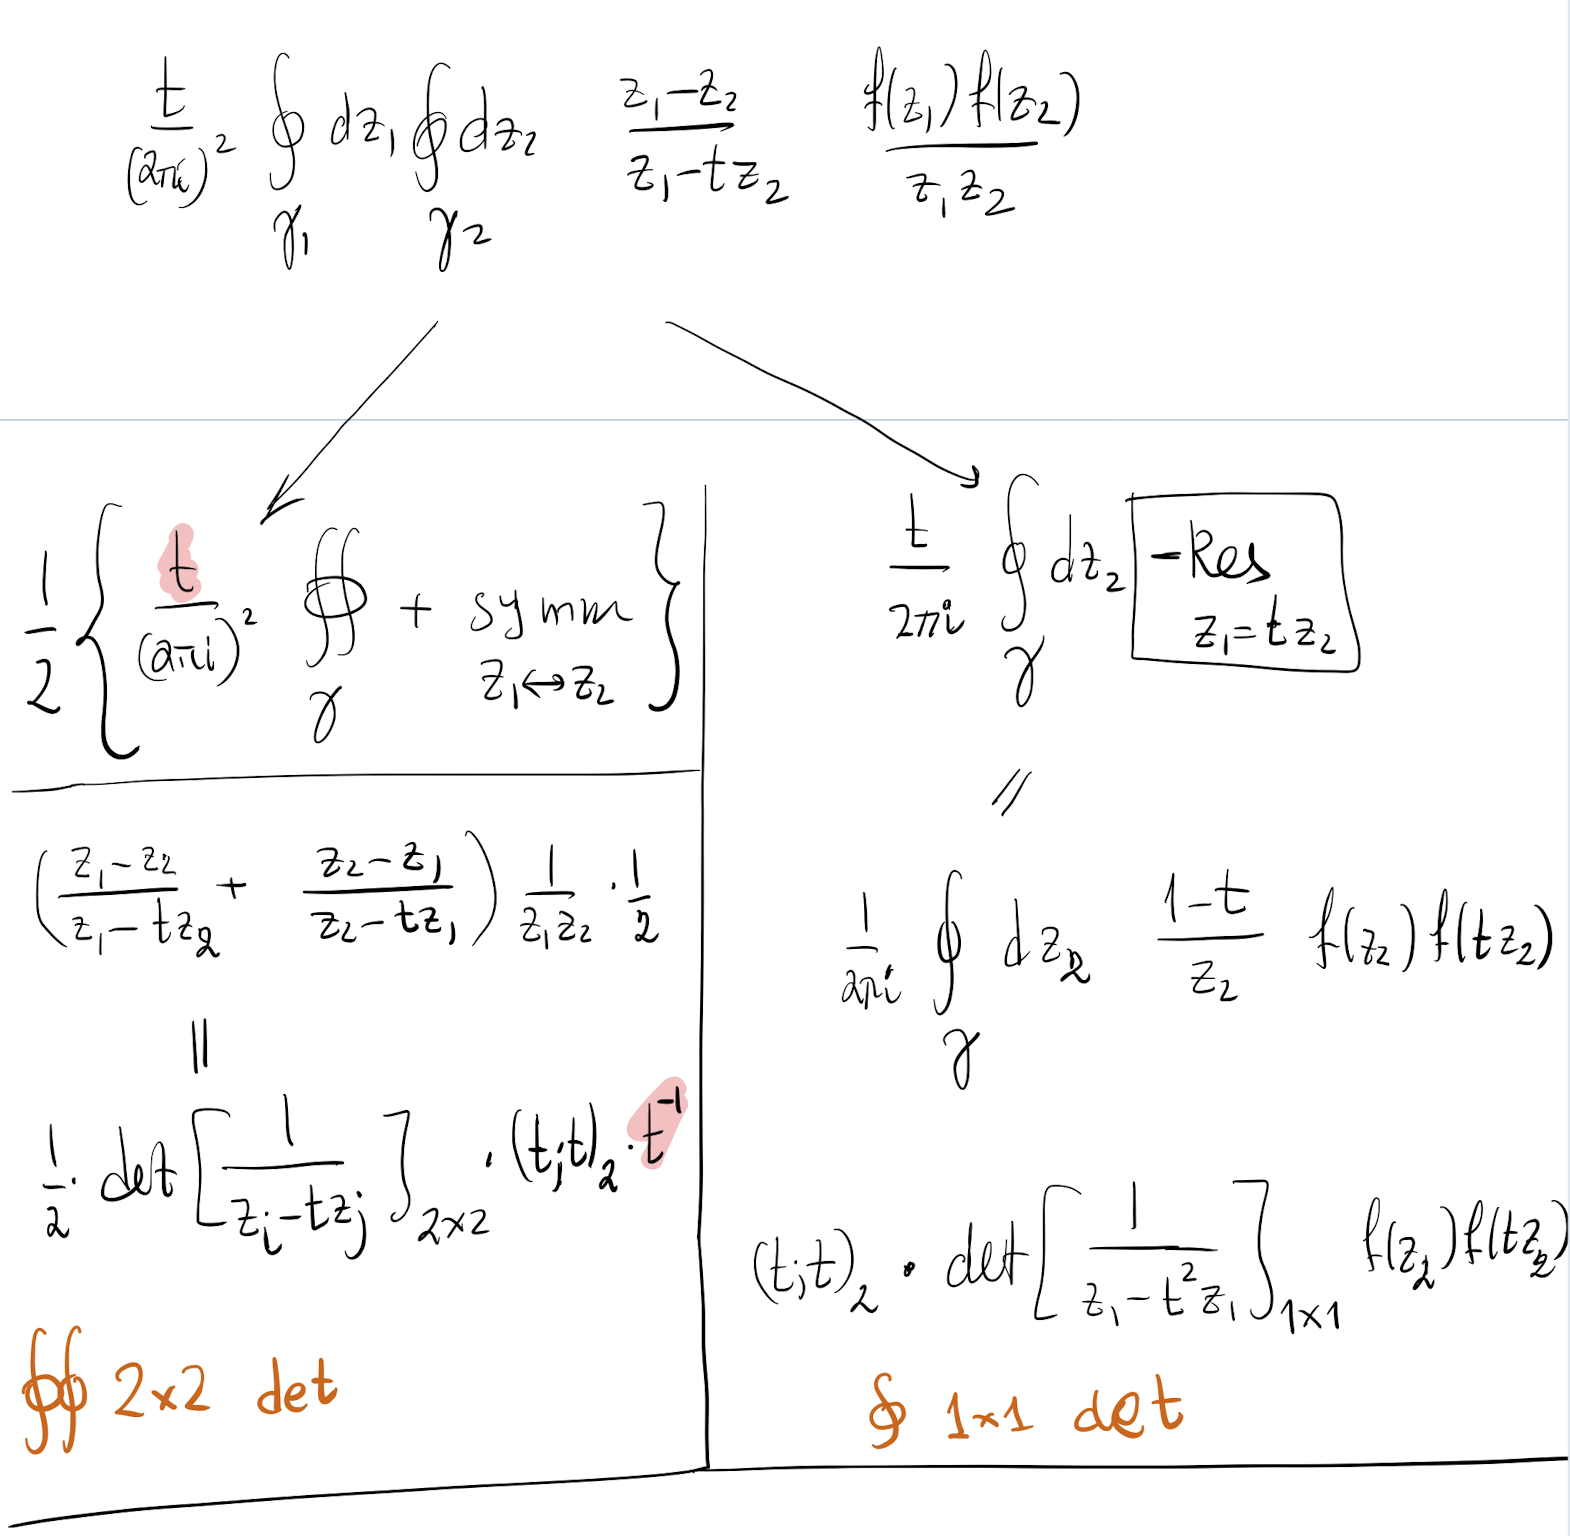 $\frac{t}{(2\pi i)^2} \oint_{\gamma_1} dz_1 \oint_{\gamma_2} dz_2 \quad \frac{z_1 - z_2}{z_1 - t z_2} \quad \frac{f(z_1) f(z_2)}{z_1 z_2}$
$\frac{1}{2} \left\{ \frac{t}{(2\pi i)^2} \oint\oint_{\gamma} + \underset{z_1 \leftrightarrow z_2}{\text{symm}} \right\}$
$\left( \frac{z_1 - z_2}{z_1 - t z_2} + \frac{z_2 - z_1}{z_2 - t z_1} \right) \frac{1}{z_1 z_2} \cdot \frac{1}{2}$
$\|$
$\frac{1}{2} \cdot \det \left[ \frac{1}{z_i - t z_j} \right]_{2 \times 2} \cdot (t;t)_2 \cdot t^{-1}$
$\oint\oint$ 2×2 det
$\frac{t}{2\pi i} \oint_{\gamma} dz_2 \; \boxed{-\underset{z_1 = t z_2}{\text{Res}}}$
$//$
$\frac{1}{2\pi i} \oint_{\gamma} dz_2 \quad \frac{1-t}{z_2} \quad f(z_2) f(t z_2)$
$(t;t)_2 \cdot \det \left[ \frac{1}{z_1 - t^2 z_1} \right]_{1 \times 1} f(z_2) f(t z_2)$
$\oint$ 1×1 det